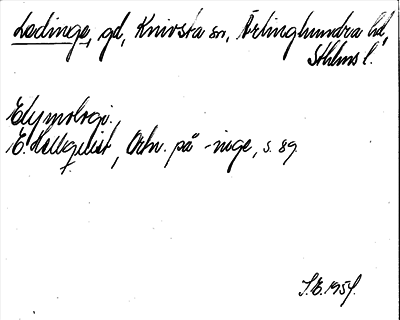 Ledinge, gd, Knivsta sn, Ärlinghundra hd,
Sthlms l.
Etymologi.,
E. Hellquist, Ortn. på -inge, s. 89.
S.E. 1954.